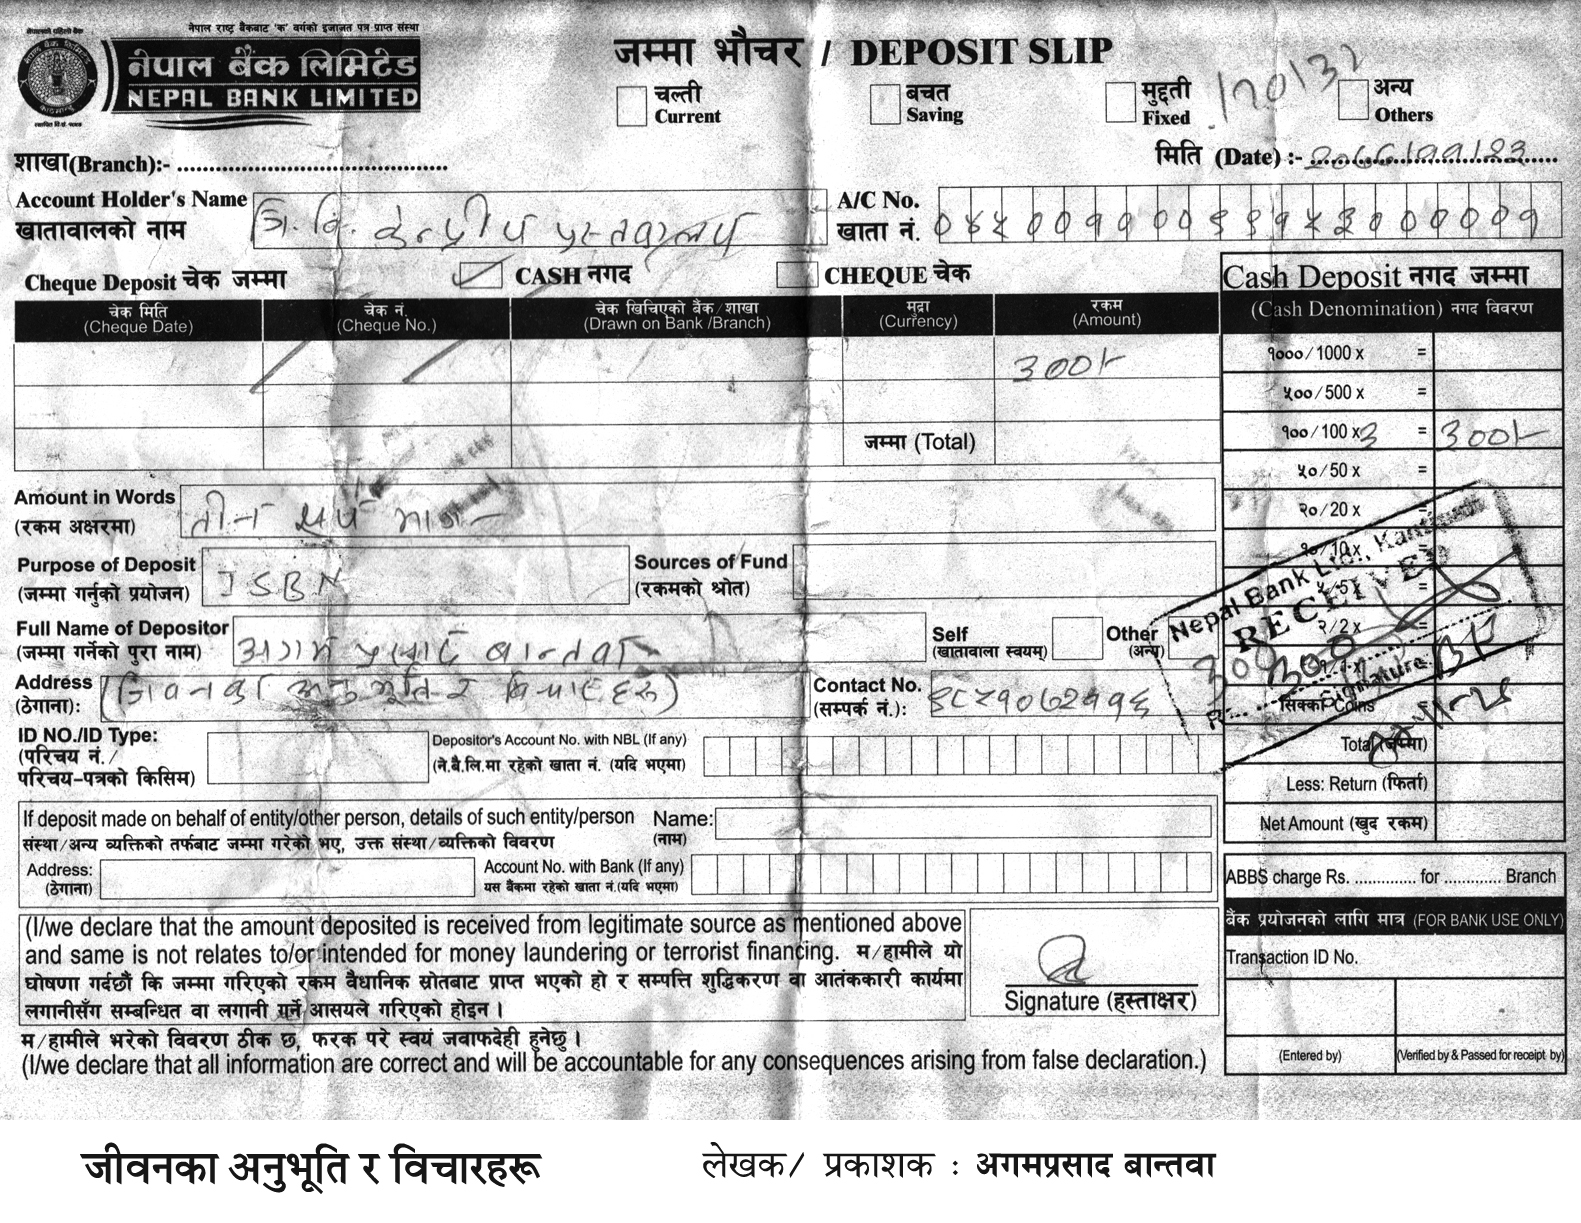 नेपालको पहिलो बैंक
नेपाल राष्ट्र बैंकबाट 'क' वर्गको इजाजत पत्र प्राप्त संस्था
नेपाल बैंक लिमिटेड
NEPAL BANK LIMITED
जम्मा भौचर / DEPOSIT SLIP
चल्ती
Current
बचत
Saving
मुद्दती
Fixed
अन्य
Others
शाखा(Branch):- ..........................................
मिति (Date) :-
Account Holder's Name
खातावालको नाम
त्रि. वि. केन्द्रीय पुस्तकालय
A/C No.
खाता नं.
Cheque Deposit चेक जम्मा
CASH नगद
CHEQUE चेक
चेक मिति
(Cheque Date)
चेक नं.
(Cheque No.)
चेक खिचिएको बैंक/शाखा
(Drawn on Bank /Branch)
मुद्रा
(Currency)
रकम
(Amount)
300/-
जम्मा (Total)
Cash Deposit नगद जम्मा
(Cash Denomination) नगद विवरण
१०००/1000 x =
५००/500 x =
१००/100 x 3 = 300/-
५०/50 x =
२०/20 x =
१०/10x =
५/5x =
२/2x =
सिक्का Coins
Total (जम्मा)
Less: Return (फिर्ता)
Net Amount (खुद रकम)
Nepal Bank Ltd., Kantipath
RECEIVED
Signature
Amount in Words
(रकम अक्षरमा)
तीन सय मात्र
Purpose of Deposit
(जम्मा गर्नुको प्रयोजन)
ISBN
Sources of Fund
(रकमको श्रोत)
Full Name of Depositor
(जम्मा गर्नेको पुरा नाम)
अगम प्रसाद बान्तवा
Self
(खातावाला स्वयम्)
Other
(अन्य)
Address
(ठेगाना):
(जिवनका अनुभूति र विचारहरू)
Contact No.
(सम्पर्क नं.):
ID NO./ID Type:
(परिचय नं./
परिचय-पत्रको किसिम)
Depositor's Account No. with NBL (If any)
(ने.बै.लि.मा रहेको खाता नं. (यदि भएमा)
If deposit made on behalf of entity/other person, details of such entity/person
संस्था/अन्य व्यक्तिको तर्फबाट जम्मा गरेको भए, उक्त संस्था/व्यक्तिको विवरण
Name:
(नाम)
Address:
(ठेगाना)
Account No. with Bank (If any)
यस बैंकमा रहेको खाता नं.(यदि भएमा)
ABBS charge Rs. .............. for ............. Branch
बैंक प्रयोजनको लागि मात्र (FOR BANK USE ONLY)
Transaction ID No.
(Entered by)
(Verified by & Passed for receipt by)
(I/we declare that the amount deposited is received from legitimate source as mentioned above
and same is not relates to/or intended for money laundering or terrorist financing. म/हामीले यो
घोषणा गर्दछौं कि जम्मा गरिएको रकम वैधानिक स्रोतबाट प्राप्त भएको हो र सम्पत्ति शुद्धिकरण वा आतंककारी कार्यमा
लगानीसँग सम्बन्धित वा लगानी गर्ने आसयले गरिएको होइन ।
Signature (हस्ताक्षर)
म/हामीले भरेको विवरण ठीक छ, फरक परे स्वयं जवाफदेही हुनेछु ।
(I/we declare that all information are correct and will be accountable for any consequences arising from false declaration.)
जीवनका अनुभूति र विचारहरू
लेखक/ प्रकाशक : अगमप्रसाद बान्तवा